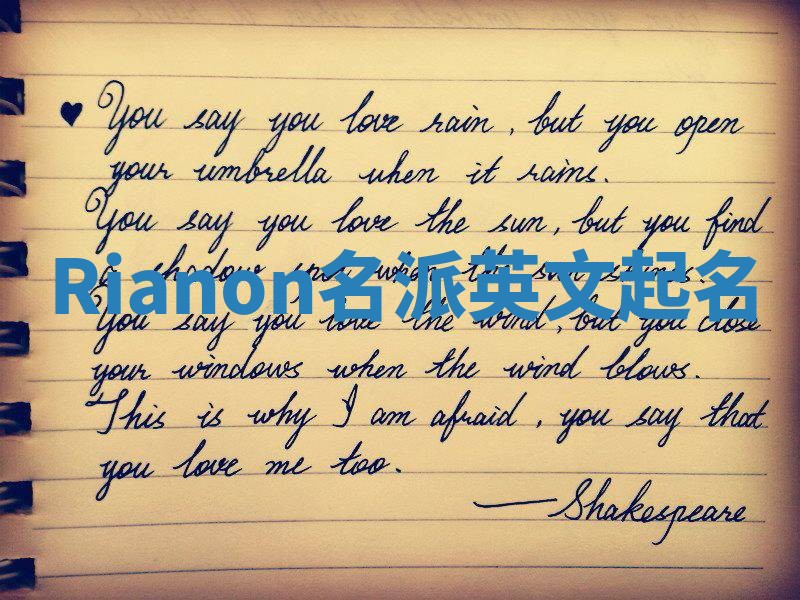 ♥ You say you love rain, but you open
your umbrella when it rains.
You say you love the sun, but you find
a shadow spot when the sun shines.
Rianon名派英文起名
You say you love the wind, but you close
your windows when the wind blows.
This is why I am afraid, you say that
you love me too.
—Shakespeare